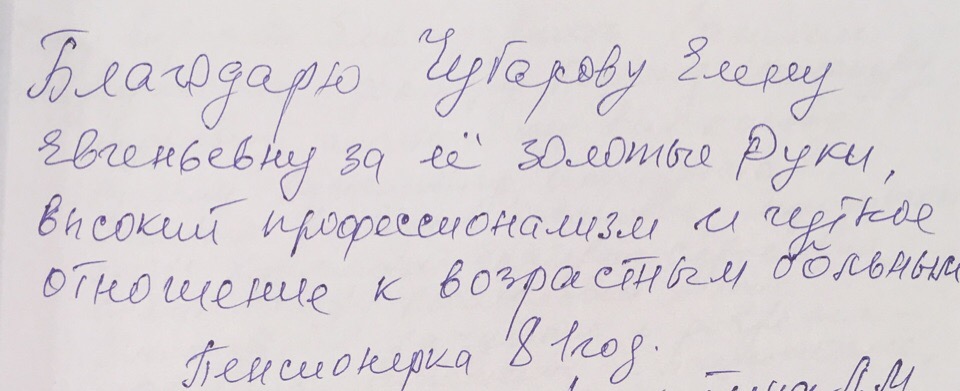 Благодарю Чубарову Елену
Евгеньевну за её золотые руки,
высокий профессионализм и чуткое
отношение к возрастным больным
Пенсионерка 81год.